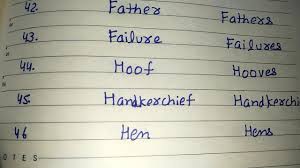 42. Father Fathers
43. Failure Failures
44. Hoof Hooves
45. Handkerchief Handkerchi
46 Hen Hens
OTES